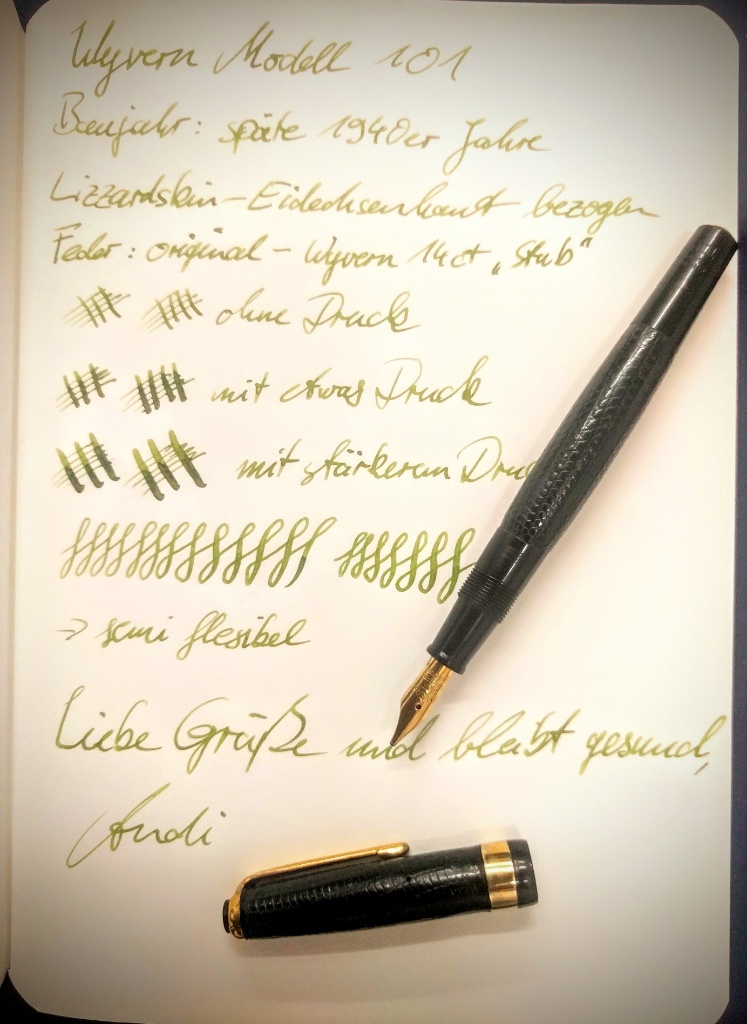 Wyvern Modell 101
Baujahr: späte 1940er Jahre
Lizzardskin-Eidechsenhaut bezogen
Feder: original - Wyvern 14ct „Stub“
ohne Druck
mit etwas Druck
mit stärkerem Druc
→ semi flexibel
Liebe Grüße und bleibt gesund,
Andi